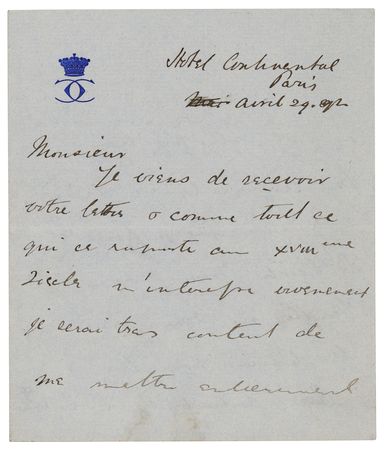 Hotel Continental
Paris
Mai avril 29. 92
Monsieur
Je viens de recevoir
votre lettre & comme tout ce
qui ce raporte au XVIIIeme
Siecle m'interesse vivement
je serai tres content de
me mettre entierement